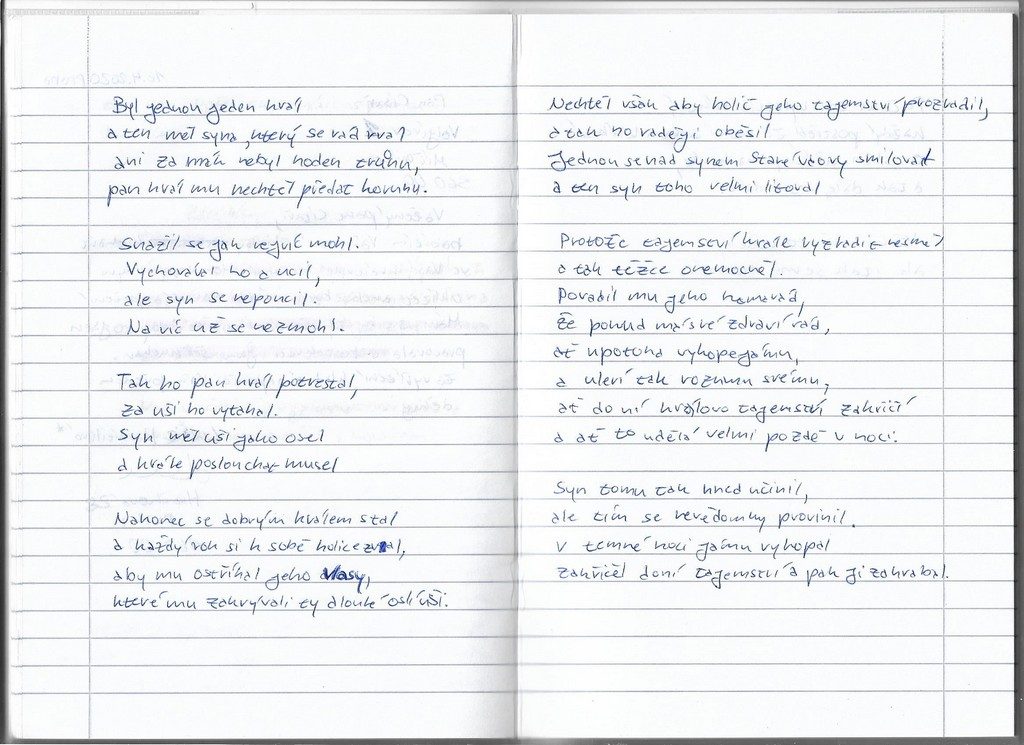 Byl jednou jeden král
a ten měl syna, který se rád rval
ani za mák nebyl hoden trůnu,
pan král mu nechtěl předat korunu.
Snažil se jak nejvíc mohl.
Vychovával ho a učil,
ale syn se nepoučil.
Na víc už se nezmohl.
Tak ho pan král potrestal,
za uši ho vytahal.
Syn měl uši jako osel
a krále poslouchat musel
Nakonec se dobrým králem stal
a každý rok si k sobě holiče zval,
aby mu ostříhal jeho vlasy,
které mu zakrývali ty dlouhé oslí uši.
Nechtěl však aby holič jeho tajemství prozradil,
a tak ho raději oběsil
Jednou se nad synem staré vdovy smiloval
a ten syn toho velmi litoval
Protože tajemství krále vyzradit nesměl
a tak těžce onemocněl.
Poradil mu jeho kamarád,
že pokud má své zdraví rád,
ať u potoka vykope jámu,
a uleví tak rozumu svému,
ať do ní královo tajemství zakřičí
a ať to udělá velmi pozdě v noci.
Syn tomu tak hned učinil,
ale tím se nevědomky provinil.
V temné noci jámu vykopal
zakřičel do ní tajemství a pak ji zahrabal.